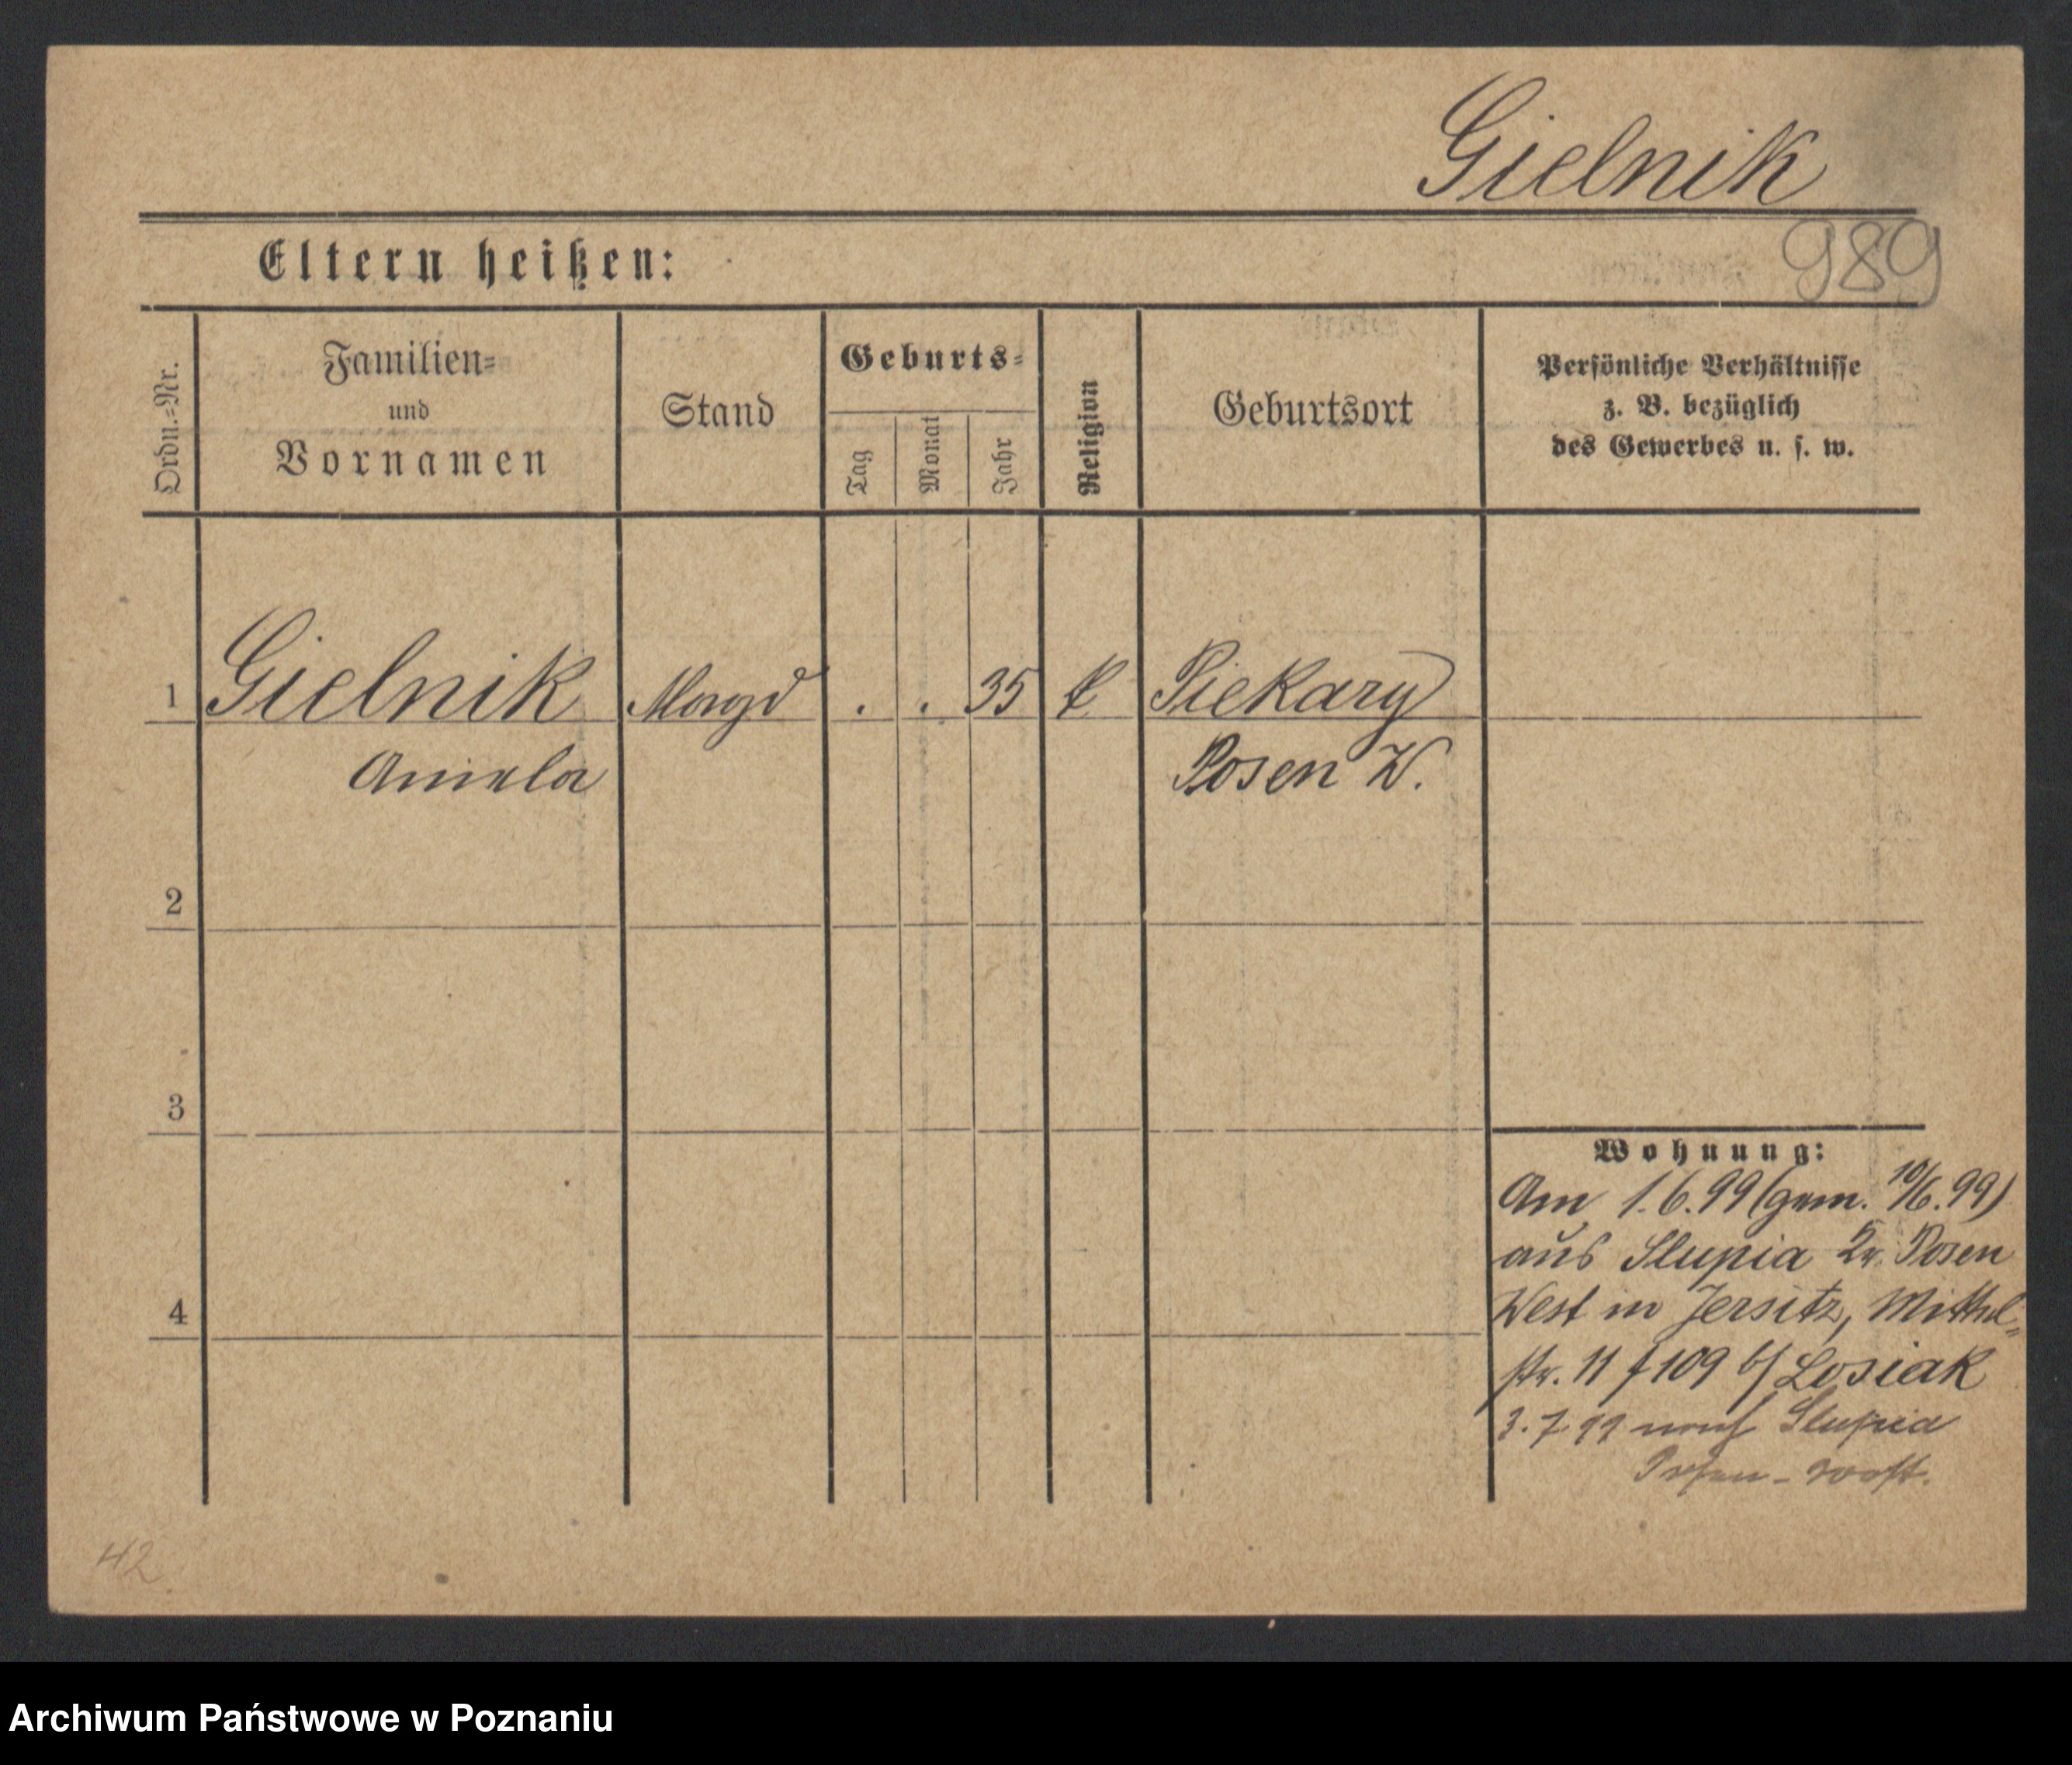 Gielnik
989
Eltern heißen:
Ordn.-Nr.
Familien-
und
Vornamen
Stand
Geburts-
Tag
Monat
Jahr
Religion
Geburtsort
Persönliche Verhältnisse
z. B. bezüglich
des Gewerbes u. s. w.
1 Gielnik Magd . . 35 k Piekary
Aniela Posen W.
2
3
4
Wohnung:
Am 1.6.99 (gem. 10/6.99)
aus Slupia Kr. Posen
West in Jersitz, Mittel-
str. 11 f 109 b/ Losiak
3.7.99 nach Slupia
Posen-West.
42
Archiwum Państwowe w Poznaniu